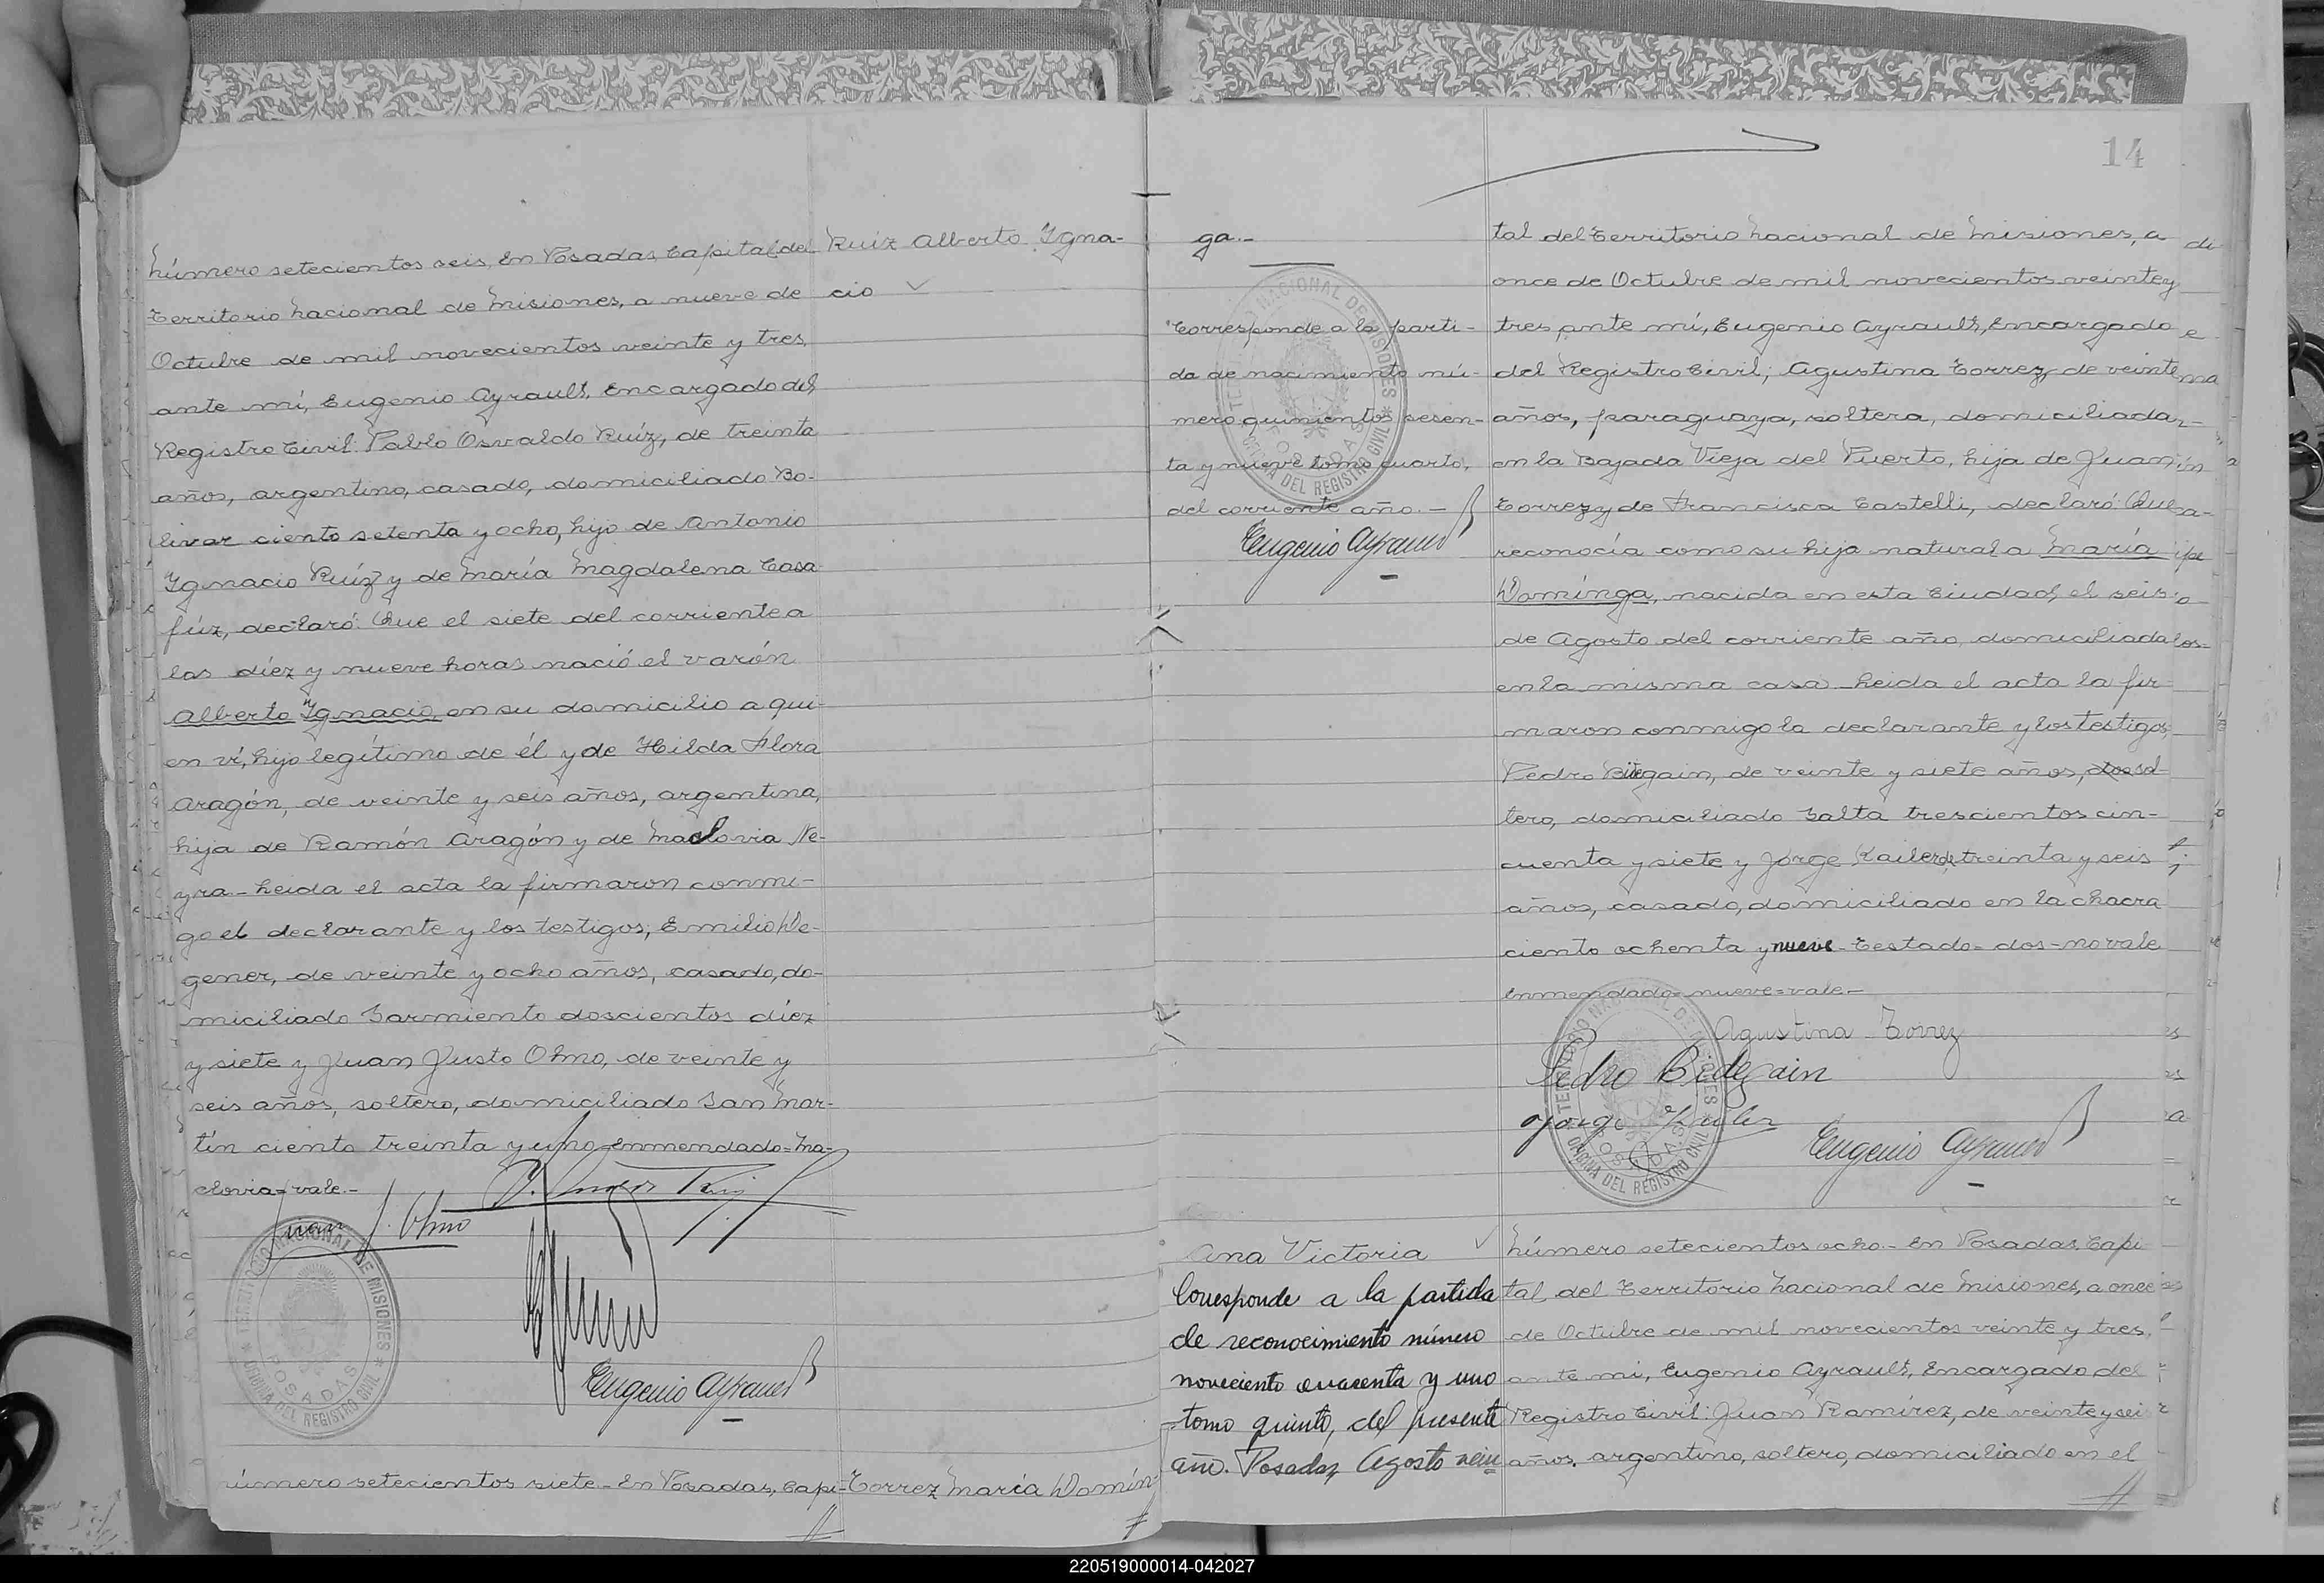 Número setecientos seis, En Posadas, Capital del
Territorio Nacional de Misiones, a nueve de
Octubre de mil novecientos veinte y tres,
ante mí, Eugenio Ayrault, Encargado del
Registro Civil: Pablo Osvaldo Ruíz, de treinta
años, argentino, casado, domiciliado Bo-
livar ciento setenta y ocho, hijo de Antonio
Ignacio Ruíz y de María Magdalena Casa-
fúz, declaró: Que el siete del corriente a
las díez y nueve horas nació el varón
Alberto Ignacio, en su domicilio a qui-
en ví, hijo legítimo de él y de Hilda Flora
Aragón, de veinte y seis años, argentina,
hija de Ramón Aragón y de Maclovia Ne-
yra - Leida el acta la firmaron conmi-
go el declarante y los testigos; Emilio We-
gener, de veinte y ocho años, casado, do-
miciliado Sarmiento doscientos díez
y siete y Juan Justo Olmo, de veinte y
seis años, soltero, domiciliado San Mar-
tín ciento treinta y uno - Enmendado = Ma-
clovia = vale. -
Juan J. Olmo
Eugenio Ayrault
TERRITORIO NACIONAL DE MISIONES
OFICINA DEL REGISTRO CIVIL
POSADAS
Ruiz Alberto Igna-
cio
Número setecientos siete - En Posadas, Capi-
Torrez María Domín-
14
ga. -
Corresponde a la parti-
da de nacimiento nú-
mero quinientos sesen-
ta y nueve tomo cuarto,
del corriente año. -
Eugenio Ayrault
TERRITORIO NACIONAL DE MISIONES
OFICINA DEL REGISTRO CIVIL
POSADAS
tal del Territorio Nacional de Misiones, a
once de Octubre de mil novecientos veinte y
tres, ante mí, Eugenio Ayrault, Encargado
del Registro Civil; Agustina Torrez, de veinte
años, paraguaya, soltera, domiciliada
en la Bajada Vieja del Puerto, hija de Juan
Torrez y de Francisca Castelli, declaró: Que
reconocía como su hija natural a María
Domínga, nacida en esta Ciudad, el seis
de Agosto del corriente año, domiciliada
en la misma casa - Leida el acta la fir-
maron conmigo la declarante y los testigos;
Pedro Bidegain, de veinte y siete años, dos sol-
tero, domiciliado Salta trescientos cin-
cuenta y siete y Jorge Kailer, de treinta y seis
años, casado, domiciliado en la chacra
ciento ochenta y nueve - Testado = dos = no vale
Enmendado = nueve = vale. -
Agustina Torrez
Pedro Bidegain
Jorge Kailer
Eugenio Ayrault
TERRITORIO NACIONAL DE MISIONES
OFICINA DEL REGISTRO CIVIL
POSADAS
Ana Victoria
Corresponde a la partida
de reconocimiento número
noveciento cuarenta y uno
tomo quinto, del presente
año. Posadas, Agosto
Número setecientos ocho - En Posadas, Capi
tal del Territorio Nacional de Misiones, a once
de Octubre de mil novecientos veinte y tres,
ante mi, Eugenio Ayrault, Encargado del
Registro Civil: Juan Ramírez, de veinte y seis
años, argentino, soltero, domiciliado en el
220519000014-042027